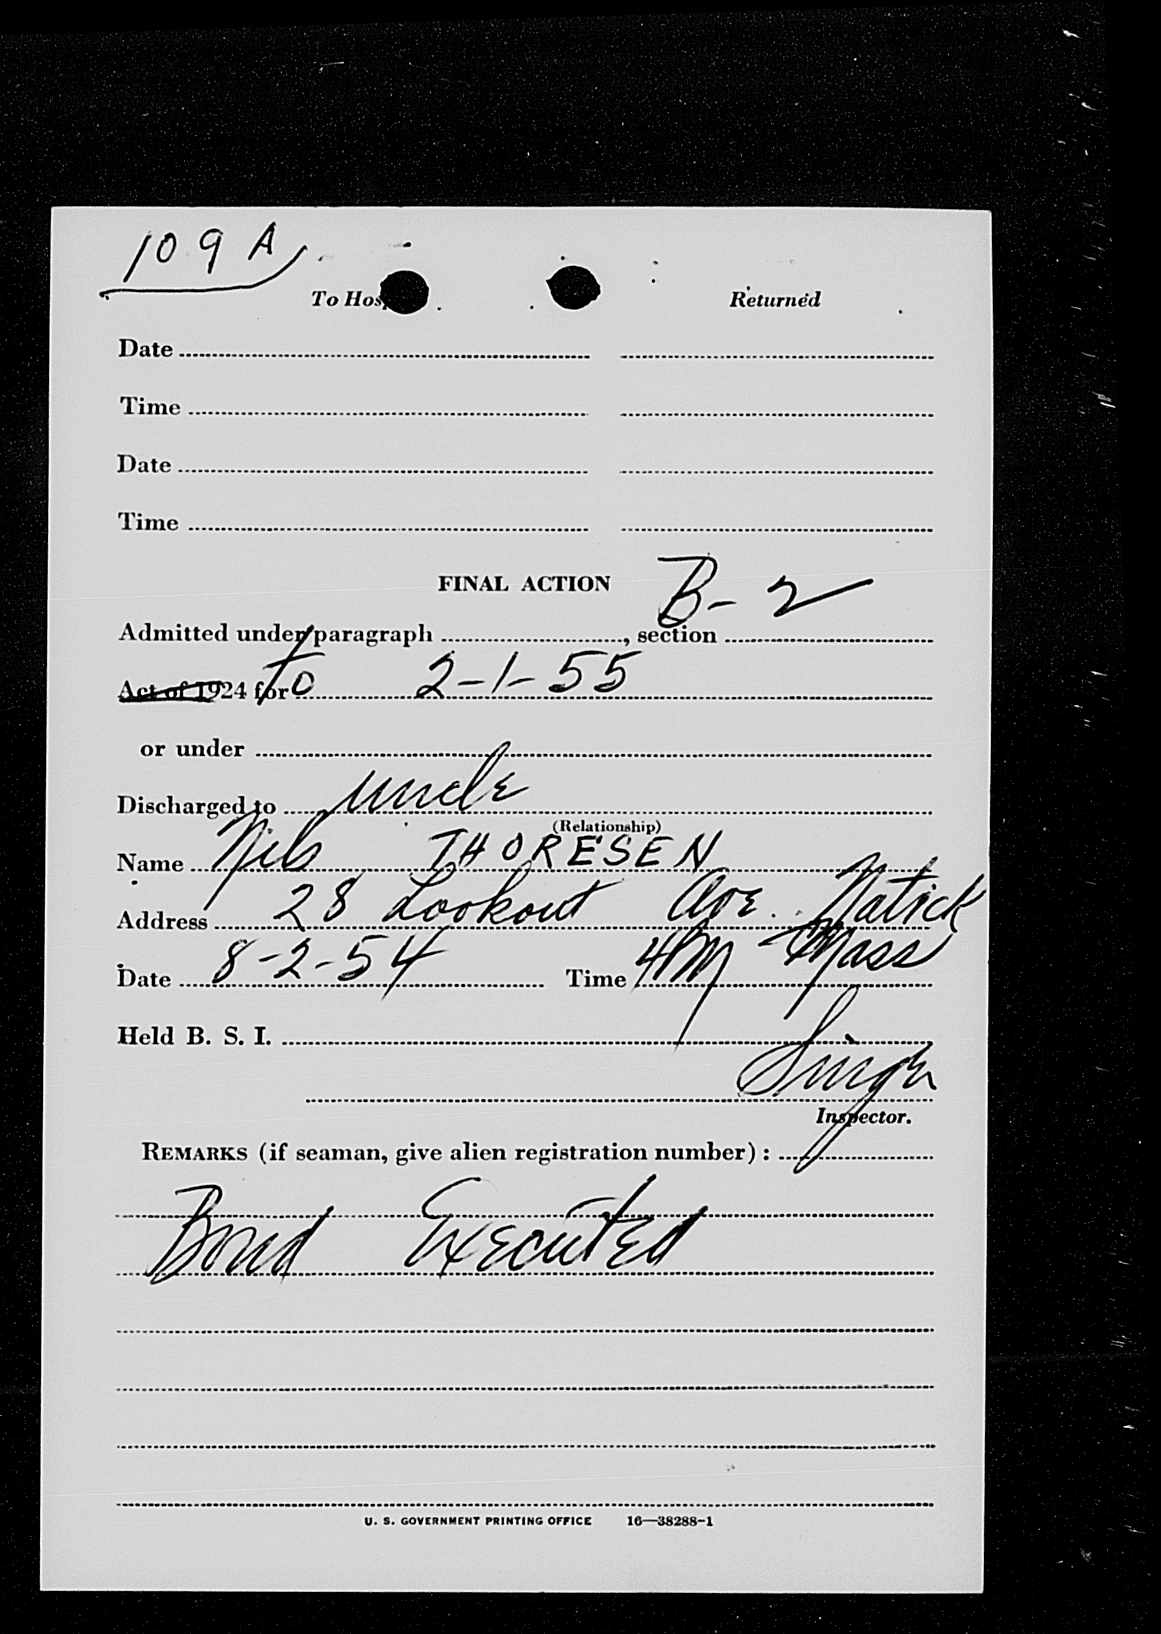 109 A
To Hos Returned
Date
Time
Date
Time
FINAL ACTION B-2
Admitted under paragraph , section
Act of 1924 for to 2-1-55
or under
Discharged to uncle
(Relationship)
Name Nils THORESEN
Address 28 Lookout Ave. Natick
Mass
Date 8-2-54 Time 4PM
Held B. S. I.
Inspector.
REMARKS (if seaman, give alien registration number):
Bond Executed
U. S. GOVERNMENT PRINTING OFFICE 16—38288-1